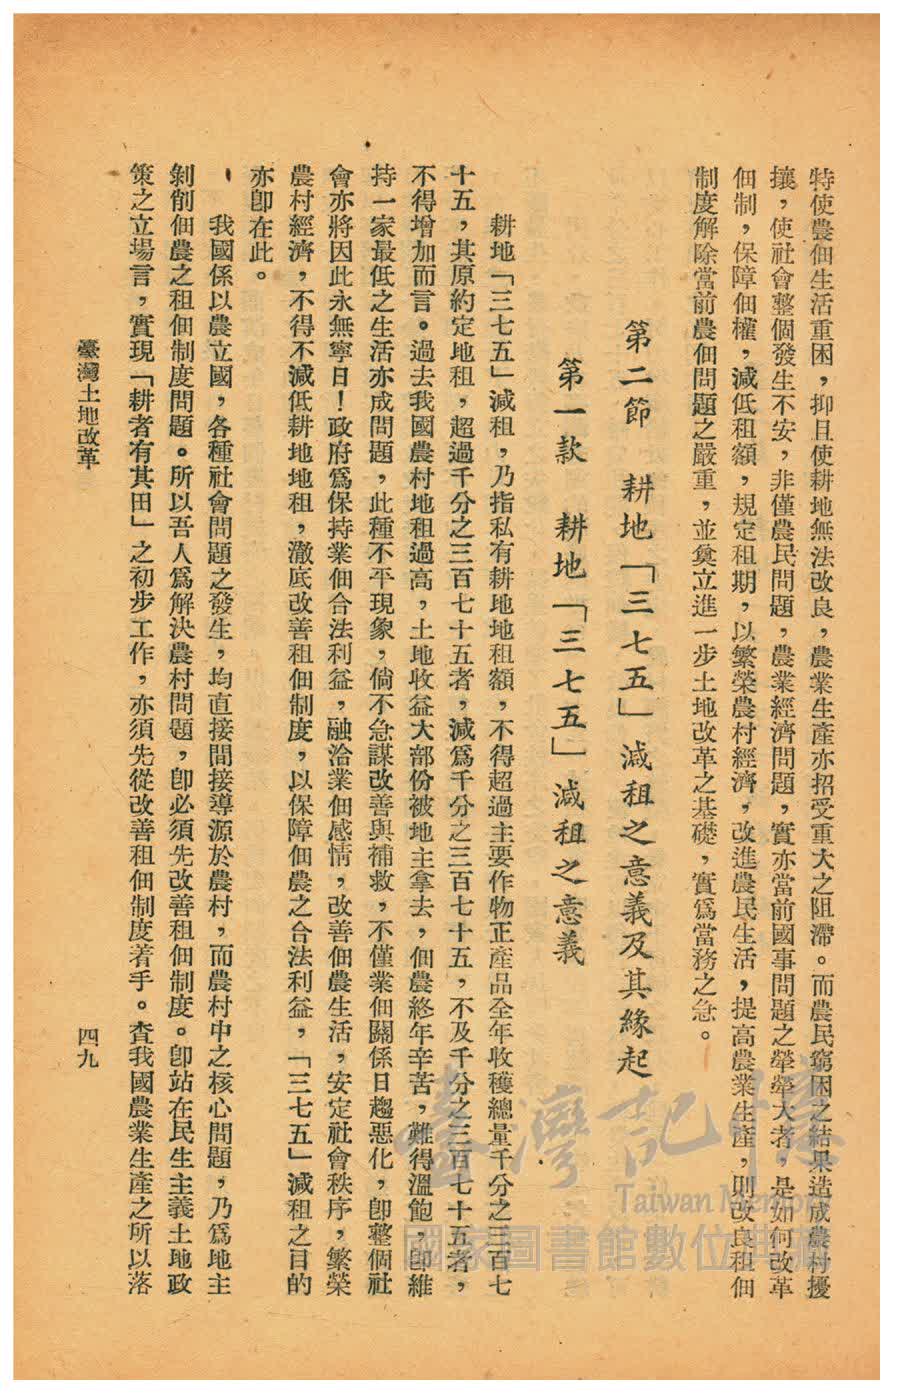 特使農佃生活重困，抑且使耕地無法改良，農業生產亦招受重大之阻滯。而農民窮困之結果造成農村擾
攘，使社會整個發生不安，非僅農民問題，農業經濟問題，實亦當前國事問題之犖犖大者，是如何改革
佃制，保障佃權，減低租額，規定租期，以繁榮農村經濟，改進農民生活，提高農業生產，則改良租佃
制度解除當前農佃問題之嚴重，並奠立進一步土地改革之基礎，實爲當務之急。
第二節　耕地「三七五」減租之意義及其緣起
第一款　耕地「三七五」減租之意義
耕地「三七五」減租，乃指私有耕地地租額，不得超過主要作物正產品全年收穫總量千分之三百七
十五，其原約定地租，超過千分之三百七十五者，減爲千分之三百七十五，不及千分之三百七十五者，
不得增加而言。過去我國農村地租過高，土地收益大部份被地主拿去，佃農終年辛苦，難得溫飽，卽維
持一家最低之生活亦成問題，此種不平現象，倘不急謀改善與補救，不僅業佃關係日趨惡化，卽整個社
會亦將因此永無寧日！政府爲保持業佃合法利益，融洽業佃感情，改善佃農生活，安定社會秩序，繁榮
農村經濟，不得不減低耕地地租，澈底改善租佃制度，以保障佃農之合法利益，「三七五」減租之目的
亦卽在此。
我國係以農立國，各種社會問題之發生，均直接間接導源於農村，而農村中之核心問題，乃爲地主
剝削佃農之租佃制度問題。所以吾人爲解決農村問題，卽必須先改善租佃制度。卽站在民生主義土地政
策之立場言，實現「耕者有其田」之初步工作，亦須先從改善租佃制度著手。查我國農業生產之所以落
臺灣土地改革
四九
臺灣記憶
Taiwan Memory
國家圖書館數位典藏